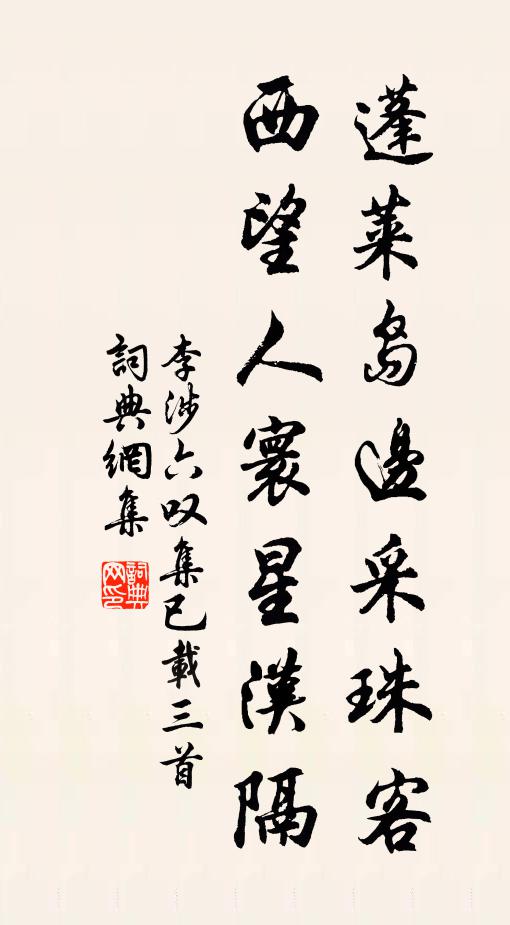 蓬萊島邊采珠客
西望人寰星漢隔
李涉六叹集已載三首
詞典網集
詞典网印